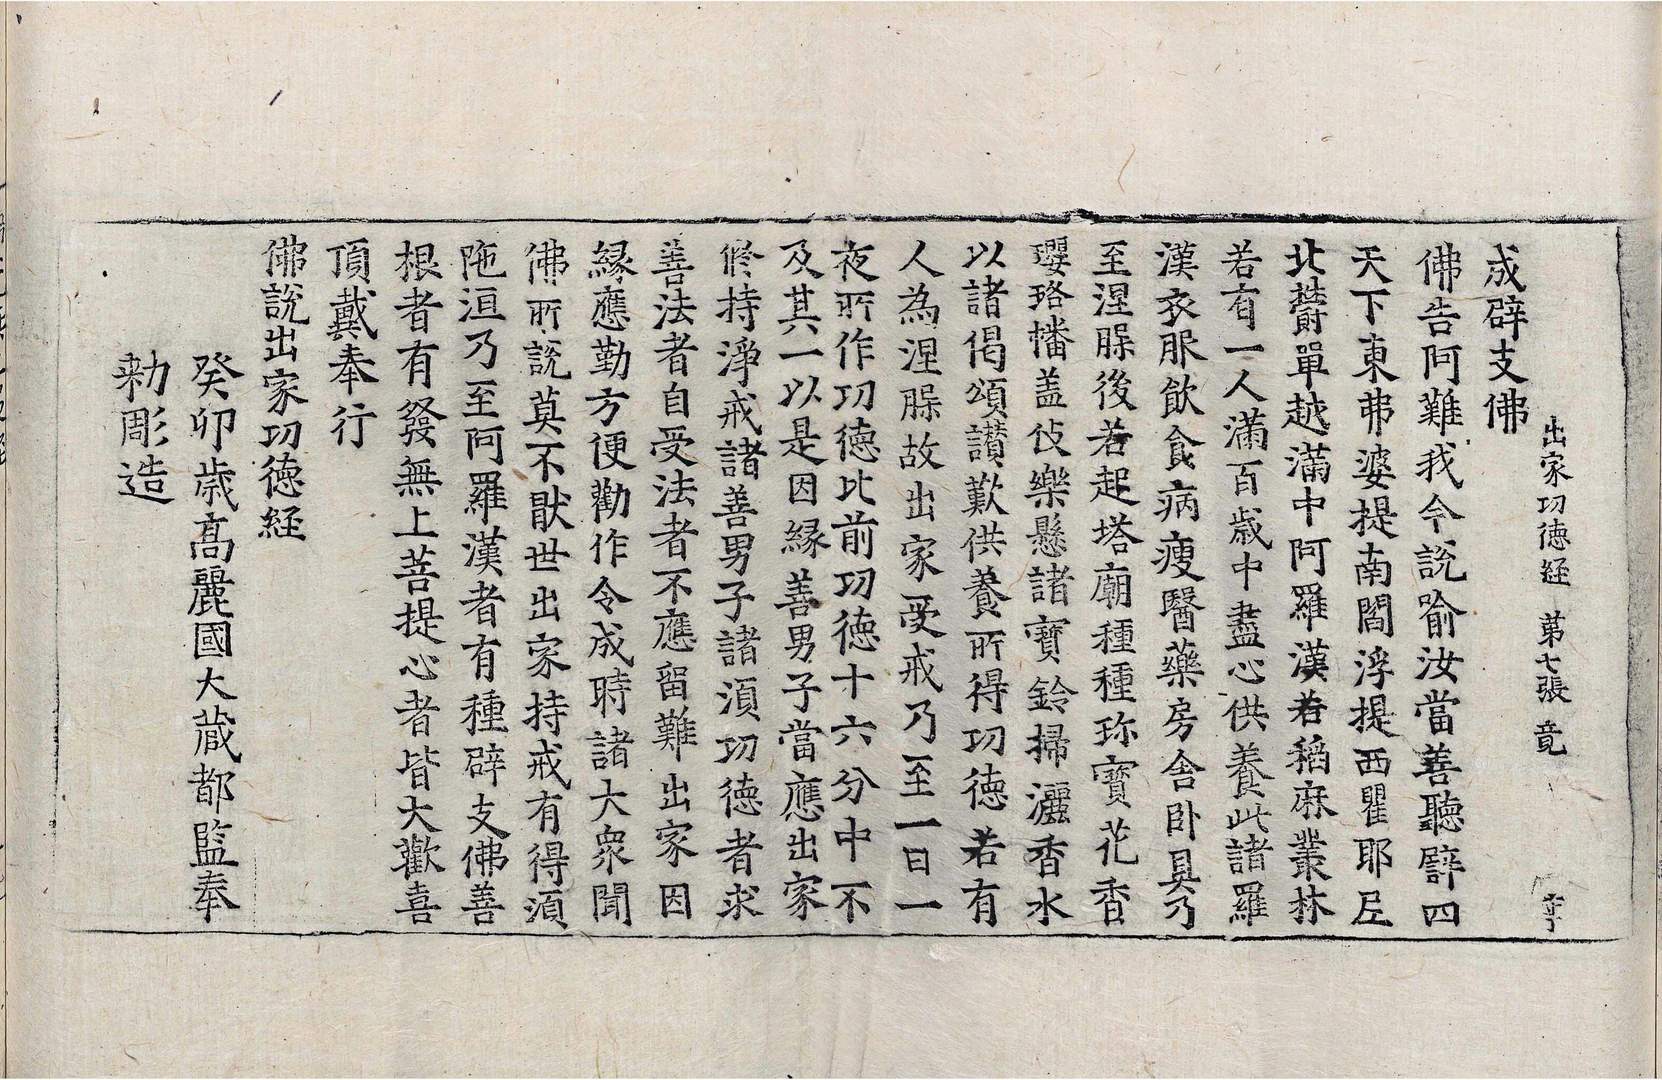 出家功徳経 第七張 竟
成辟支佛
佛告阿難我今説喻汝當善聽譬四
天下東弗婆提南閻浮提西瞿耶尼
北欝單越滿中阿羅漢若稻麻叢林
若有一人滿百歲中盡心供養此諸羅
漢衣服飲食病瘦醫藥房舍卧具乃
至涅槃後若起塔廟種種珎寶花香
瓔珞幡盖伎樂懸諸寶鈴掃灑香水
以諸偈頌讃歎供養所得功德若有
人為涅槃故出家受戒乃至一日一
夜所作功徳比前功徳十六分中不
及其一以是因縁善男子當應出家
修持淨戒諸善男子諸湏功徳者求
善法者自受法者不應留難出家因
縁應勤方便勸作令成時諸大衆聞
佛所説莫不猒世出家持戒有得湏
陁洹乃至阿羅漢者有種辟支佛善
根者有發無上菩提心者皆大歡喜
頂戴奉行
佛説出家功徳経
癸卯歳髙麗國大藏都監奉
勑彫造